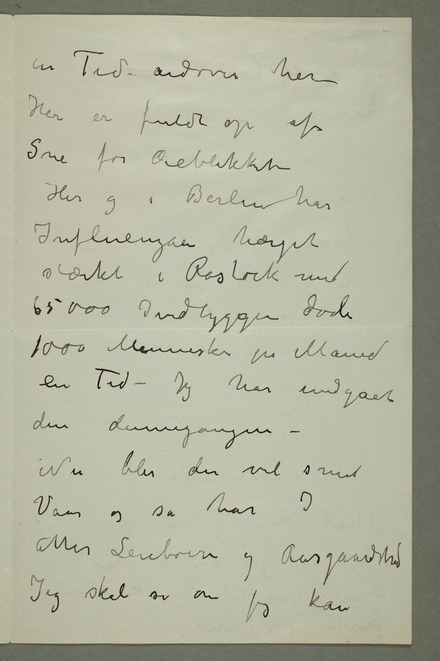 en Tid udover her
Her er fuldt op af
Sne for Øieblikket
Her og i Berlin har
Influenzaen hærget
stærkt i Rostock med
65000 Indbygger døde
1000 Mennesker pr Maaned
en Tid – Jeg har undgaaet
den dennegangen –
Nu blir det vel snart
Vaar og så har I
atter og Aasgaardstrand
Jeg skal se om jeg kan